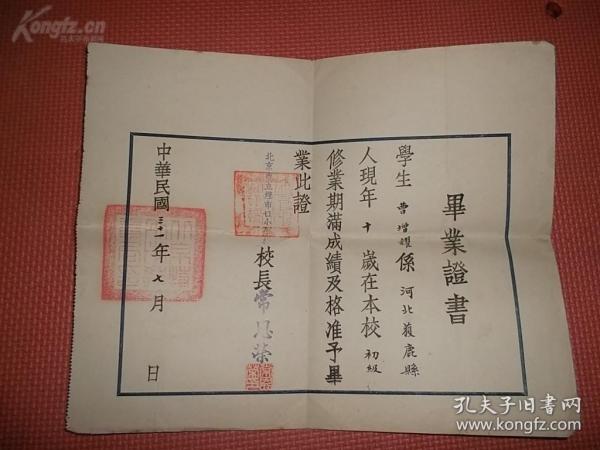 畢業證書
學生曹增耀係河北獲鹿縣
人現年十歲在本校初級
修業期滿成績及格准予畢
業此證
北京市立缸市口小學
校長常
中華民國三十一年七月 日
Kongfz.cn
孔夫子旧书网